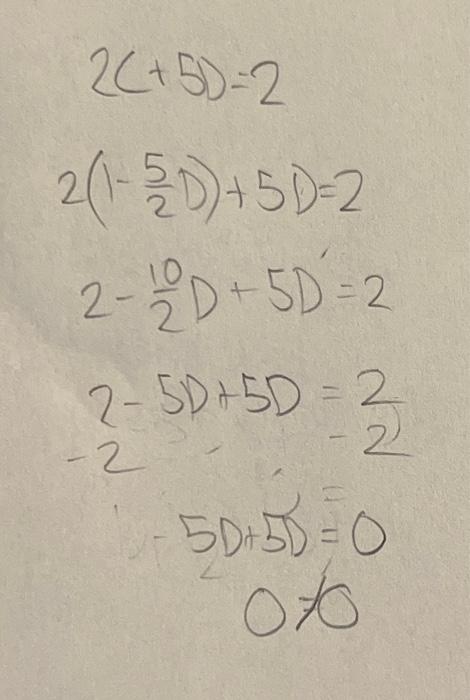 2C+5D=2
2(1-5/2D)+5D=2
2-10/2D+5D=2
2-5D+5D=2
-2 -2
-5D+5D=0
0≠0